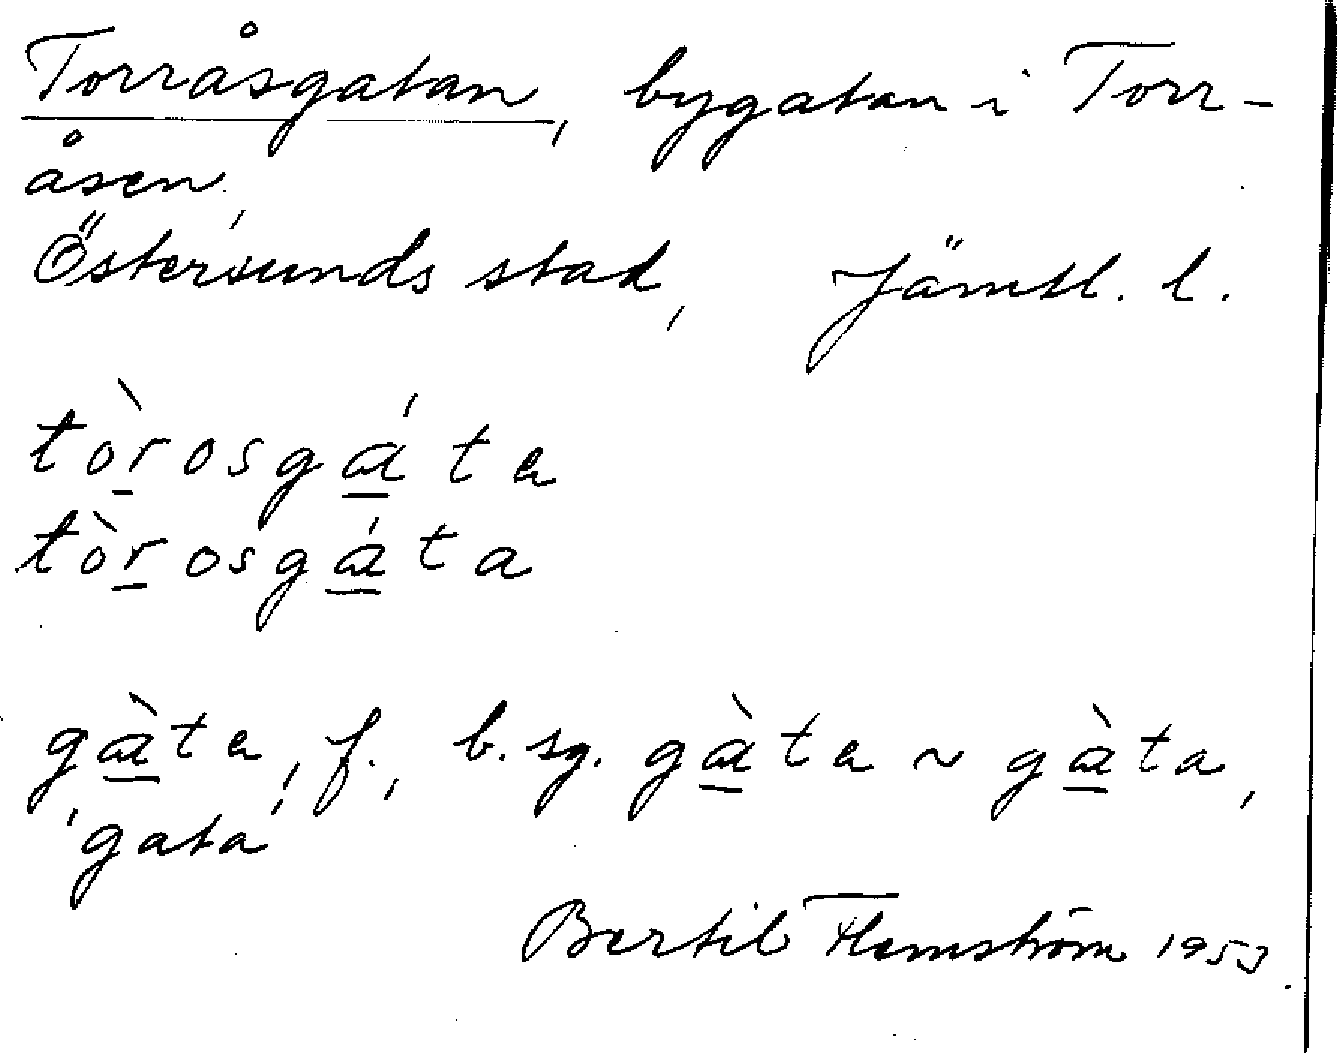 Torråsgatan, bygatan i Torr-
åsen,
Östersunds stad, Jämtl. l.
tòr̲osgá̲ta
tòr̲osgá̲ta
gà̲ta, f., b. sg. gà̲ta ~ gà̲ta,
'gata'
Bertil Flemström 1953